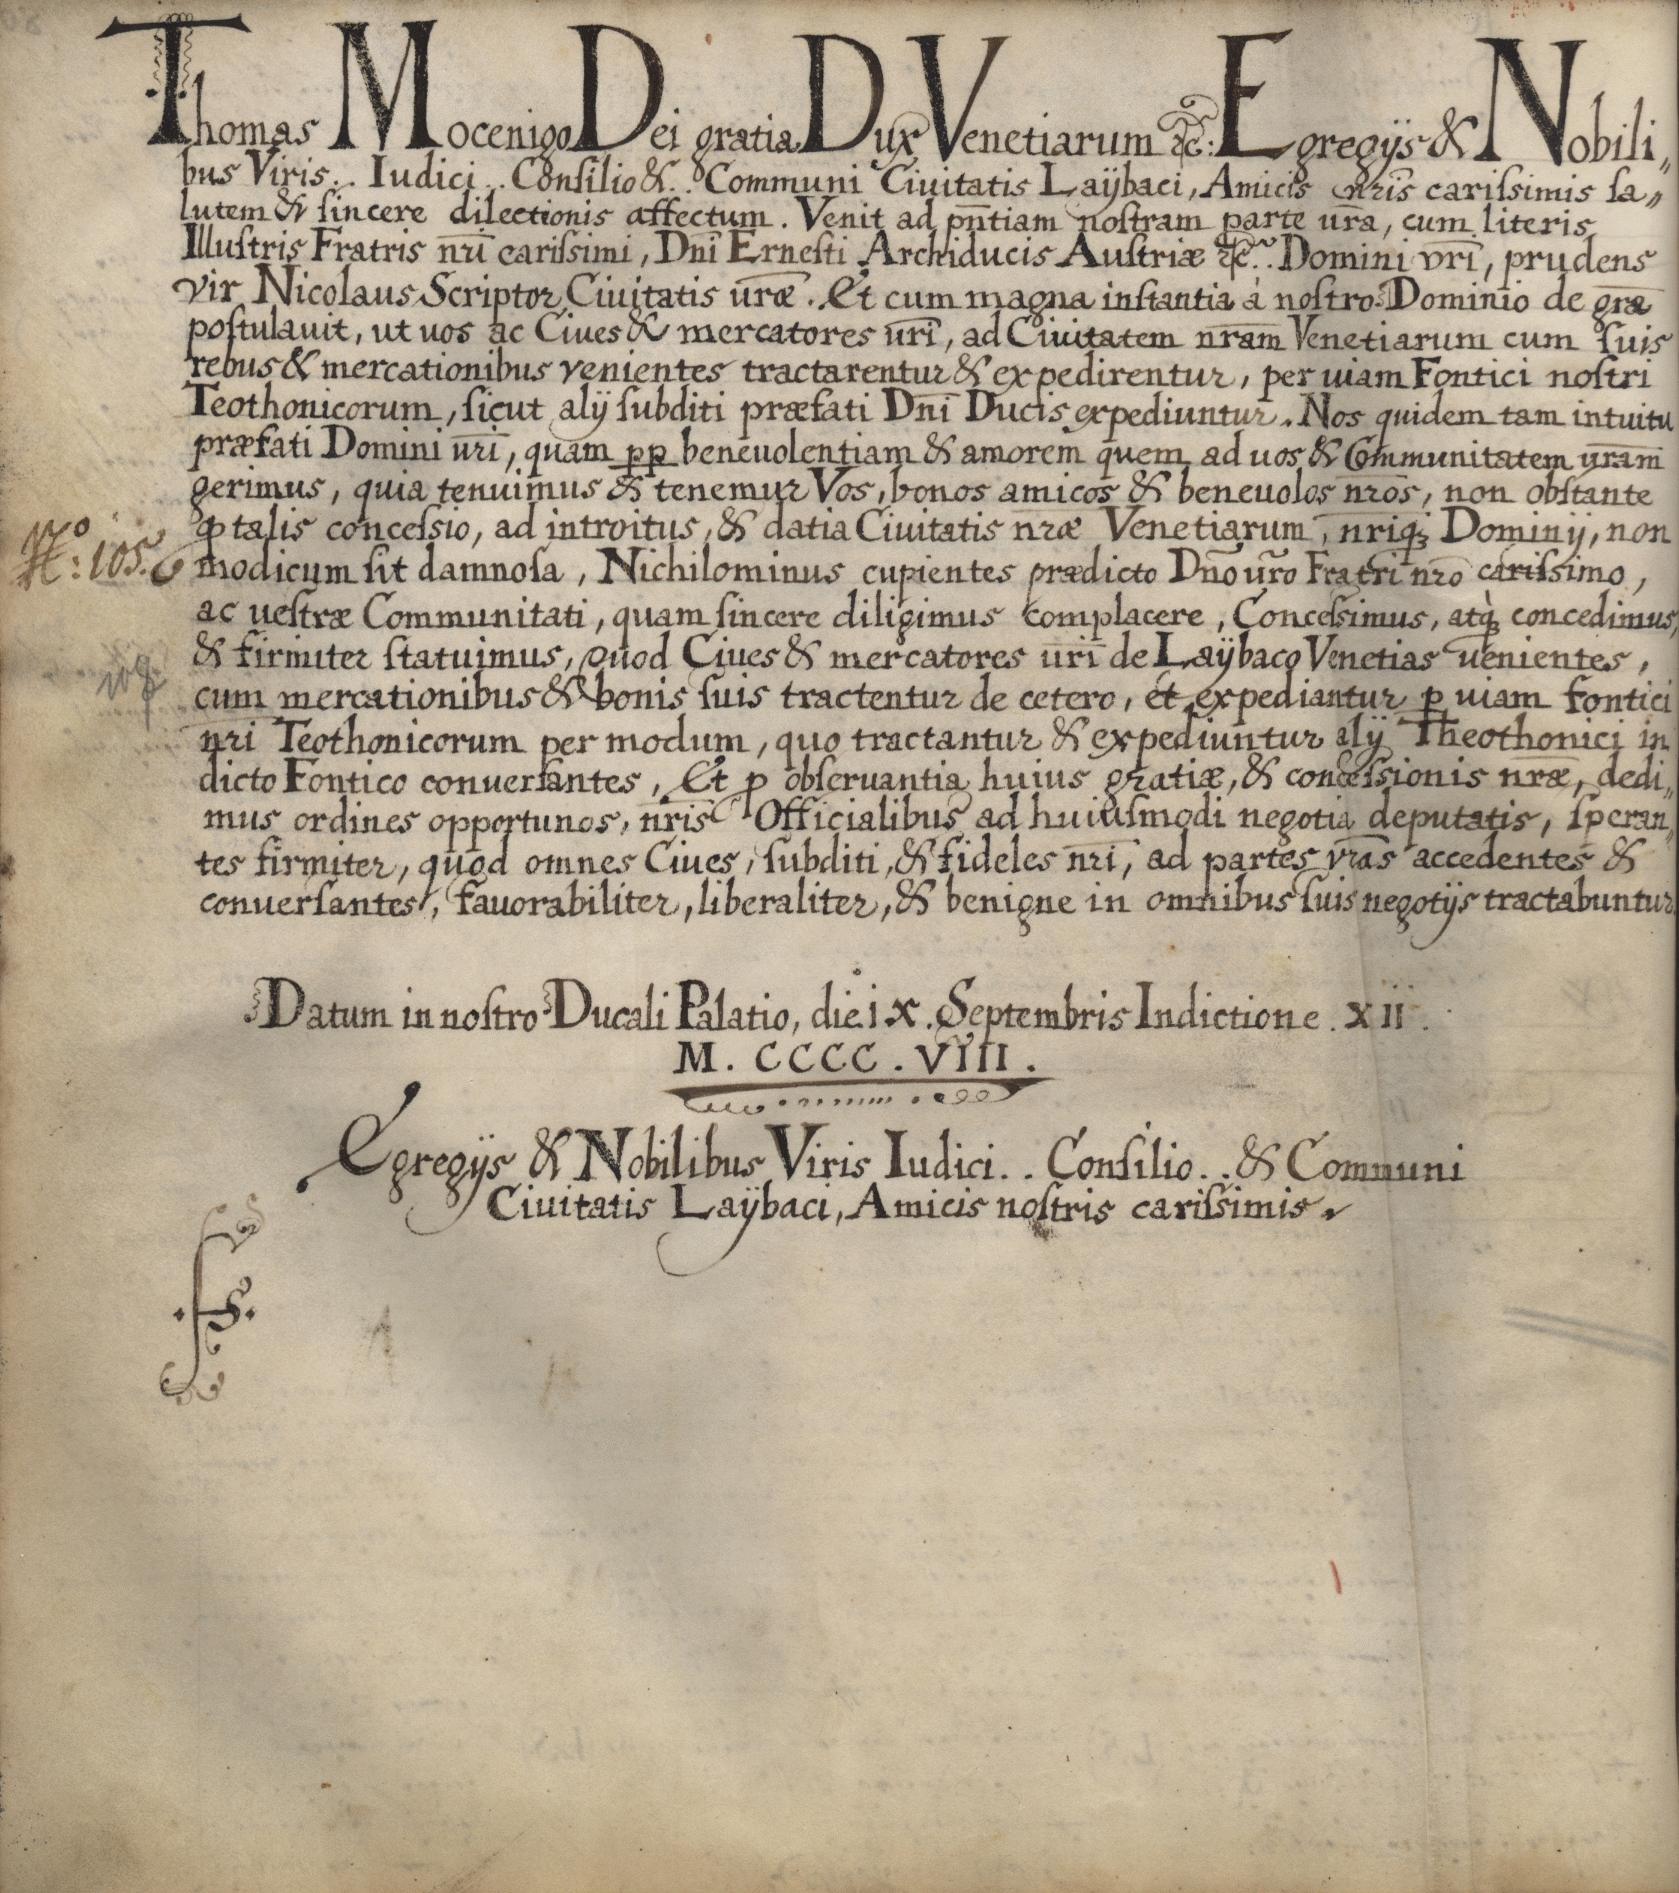 Thomas Mocenigo Dei gratia Dux Venetiarum &c: Egregijs & Nobili„
bus Viris.. Iudici.. Consilio &.. Communi Ciuitatis Laÿbaci, Amicis nr̄is cariſsimis ſa„
lutem & ſincere dilectionis affectum. Venit ad pn̄tiam noſtram parte ura, cum literis
Illuſtris Fratris nr̄i cariſsimi, Dn̄i Erneſti Archiducis Auſtriæ &c.. Domini vr̄i, prudens
vir Nicolaus Scriptor Ciuitatis ur̄æ. Et cum magna inſtantia à noſtro Dominio de gr̄a
poſtulauit, ut uos ac Ciues & mercatores ur̄i, ad Ciuitatem nr̄am Venetiarum cum ſuis
rebus & mercationibus venientes tractarentur & expedirentur, per uiam Fontici noſtri
Teothonicorum, ſicut alÿ ſubditi præfati Dn̄i Ducis expediuntur. Nos quidem tam intuitu
præfati Domini ur̄i, quam pp beneuolentiam & amorem quem ad uos & Communitatem ur̄am
gerimus, quia tenuimus & tenemur Vos, bonos amicos & beneuolos nr̄os, non obſtante
ꝙ talis conceſsio, ad introitus, & datia Ciuitatis nræ Venetiarum, nriqꝫ Dominij, non
modicum ſit damnoſa, Nichilominus cupientes prædicto Dn̄o ur̄o Fratri nr̄o cariſsimo,
ac ueſtræ Communitati, quam ſincere diligimus complacere, Conceſsimus, atqꝫ concedimus,
& firmiter ſtatuimus, quod Ciues & mercatores ur̄i de Laÿbaco Venetias uenientes,
cum mercationibus & bonis ſuis tractentur de cetero, et expediantur ꝑ uiam fontici
nr̄i Teothonicorum per modum, quo tractantur & expediuntur alÿ Theothonici in
dicto Fontico conuerſantes, Et ꝓ obſeruantia huius gratiæ, & conceſsionis nr̄æ, dedi„
mus ordines opportunos, nr̄is Officialibus ad huiuſmodi negotia deputatis, ſperan„
tes firmiter, quod omnes Ciues, ſubditi, & fideles nr̄i, ad partes vr̄as accedentes &
conuerſantes, fauorabiliter, liberaliter, & benigne in omnibus ſuis negotÿs tractabuntur
Nº: 105.
108
Datum in noſtro Ducali Palatio, die ix. Septembris Indictione. xii.
M. CCCC. VIII.
Egregÿs & Nobilibus Viris Iudici.. Conſilio.. & Communi
Ciuitatis Laÿbaci, Amicis noſtris cariſsimis.